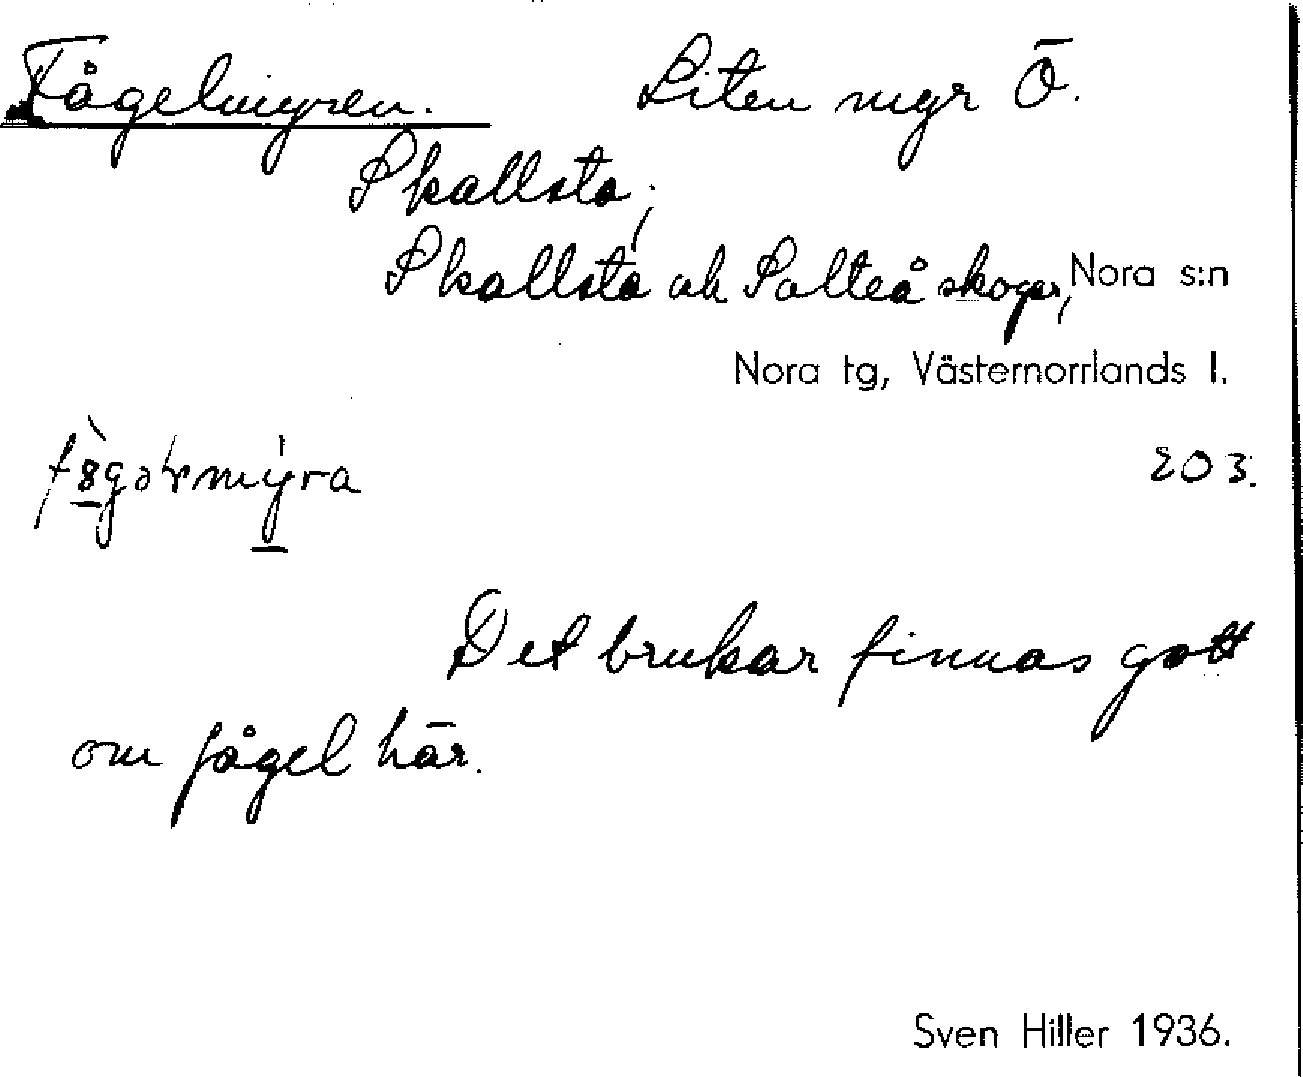 Fågelmyren. Liten myr Ö.
Skallsta;
Skallsta ok Salteå skogar, Nora s:n
Nora tg, Västernorrlands l.
203.
Det brukar finnas gott
om fågel här.
Sven Hiller 1936.